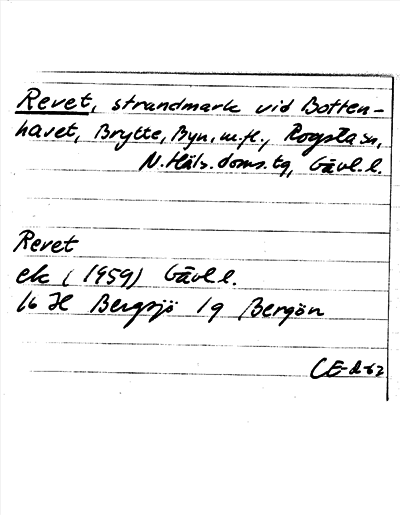 Revet, strandmark vid Botten-
havet, Brytte, Byn, m.fl., Rogsta sn,
N. Häls. doms. tg, Gävl. l.
Revet
ek (1959) Gävl l.
16 H Bergsjö 19 Bergön
CE-d-62